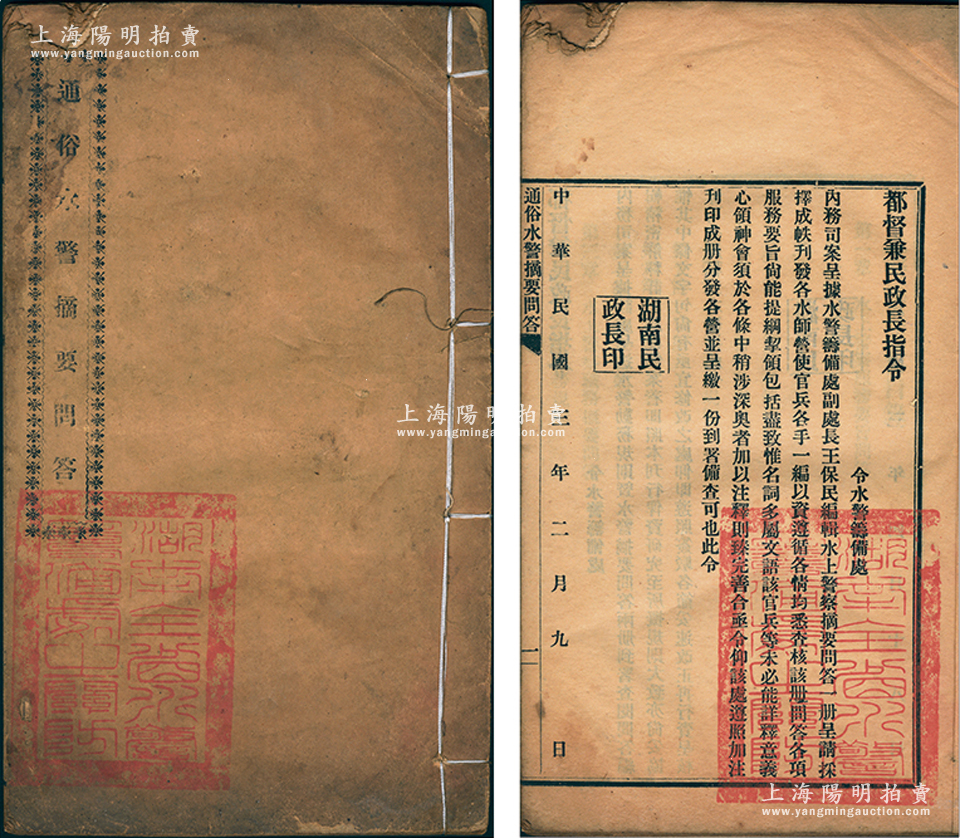 上海陽明拍賣
www.yangmingauction.com
通俗水警摘要問答
上海陽明拍賣
www.yangmingauction.com
都督兼民政長指令
令水警籌備處
內務司案呈據水警籌備處副處長王保民編輯水上警察摘要問答一册呈請採
擇成帙刊發各水師營使官兵各手一編以資遵循各情均悉查核該册問答各項
服務要旨尙能提綱挈領包括盡致惟名詞多屬文語該官兵等未必能詳釋意義
心領神會須於各條中稍涉深奧者加以注釋則臻完善合亟令仰該處遵照加注
刊印成册分發各營並呈繳一份到署備查可也此令
湖南民
政長印
中華民國三年二月九日
通俗水警摘要問答
一
上海陽明拍賣
www.yangmingauction.com